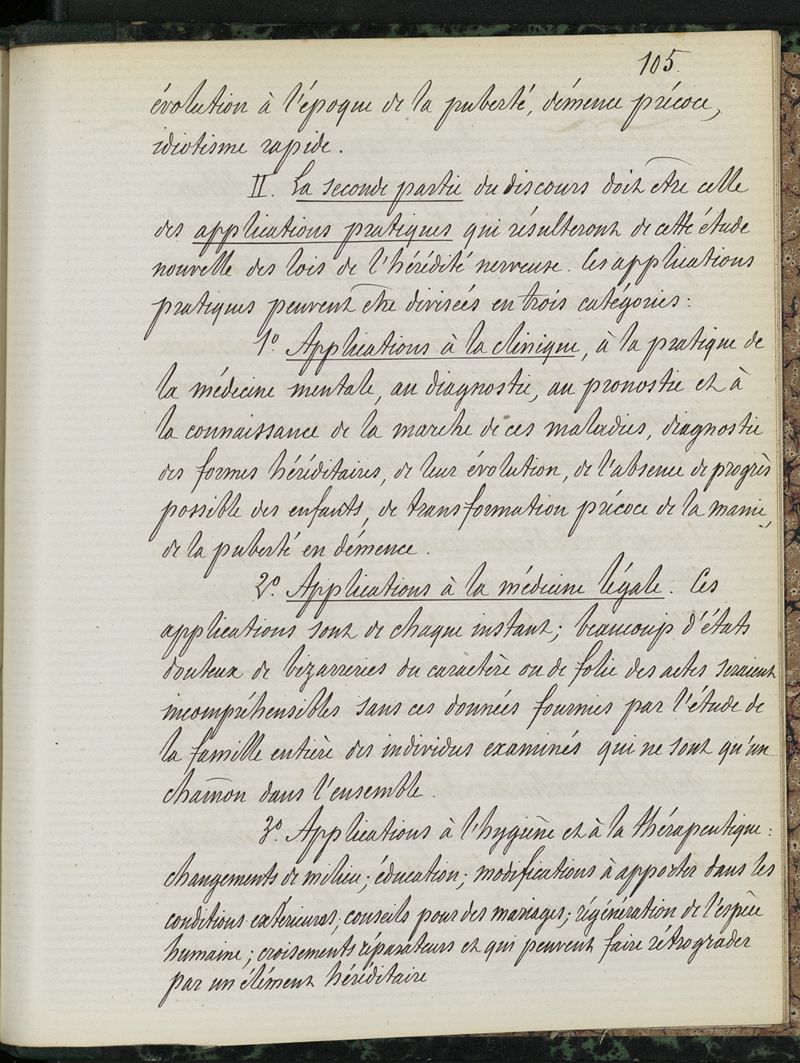 105.
évolution à l'époque de la puberté, démence précoce,
idiotisme rapide.
II. La seconde partie du discours doit être celle
des applications pratiques qui résulteront de cette étude
nouvelle des lois de l'hérédité nerveuse. Ces applications
pratiques peuvent être divisées en trois catégories:
1º Applications à la clinique, à la pratique de
la médecine mentale, au diagnostic, au pronostic et à
la connaissance de la marche de ces maladies, diagnostic
des formes héréditaires, de leur évolution, de l'absence de progrès
possible des enfants, de transformation précoce de la manie,
de la puberté en démence.
2º. Applications à la médecine légale. Ces
applications sont de chaque instant; beaucoup d'états
douteux de bizarreries du caractère ou de folie des actes seraient
incompréhensibles sans ces données fournies par l'étude de
la famille entière des individus examinés qui ne sont qu'un
chaînon dans l'ensemble.
3º. Applications à l'hygiène et à la thérapeutique:
changements de milieu; éducation; modifications à apporter dans les
conditions extérieures; conseils pour des mariages; régénération de l'espèce
humaine; croisements réparateurs et qui peuvent faire rétrograder
par un élément héréditaire